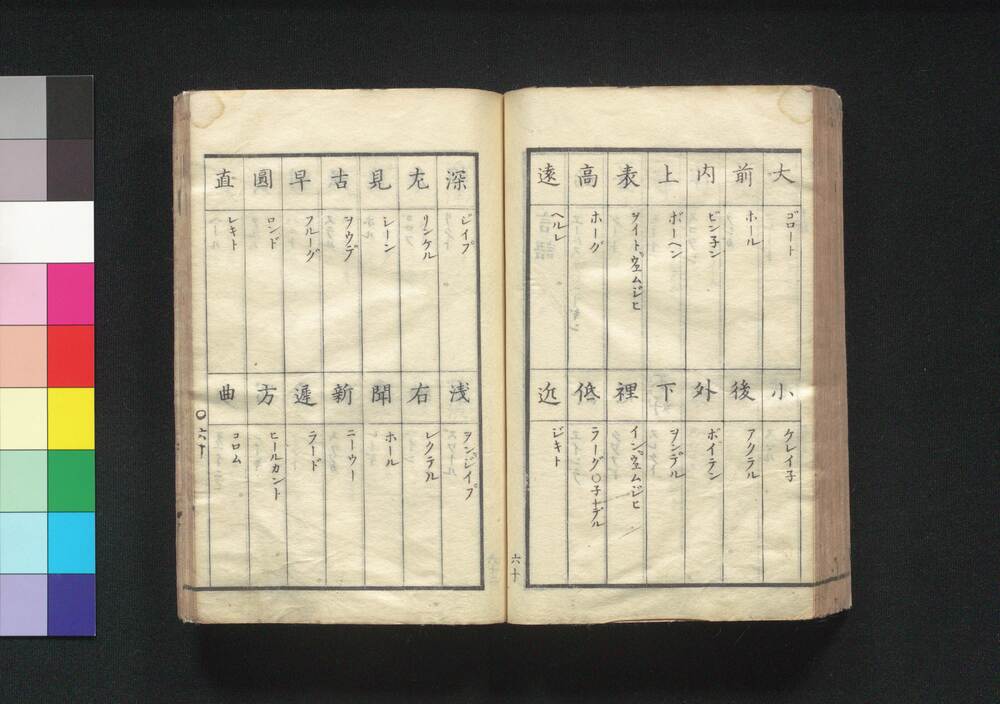 大 ゴロート
前 ホール
内 ビン子ン
上 ボーヘン
表 ヲイトヴエムジヒ
高 ホーグ
遠 ヘルレ
小 ケレイ子
後 アクテル
外 ボイテン
下 ヲンデル
裡 インヴエムジヒ
低 ラーグ〇子ーデル
近 ジキト
六十
深 ジイプ
左 リンケル
見 シーン
古 ヲウデ
早 フルーグ
圓 ロンド
直 レキト
浅 ヲンジイプ
右 レクテル
聞 ホール
新 ニーウー
遲 ラード
方 ヒールカント
曲 コロム
〇六十